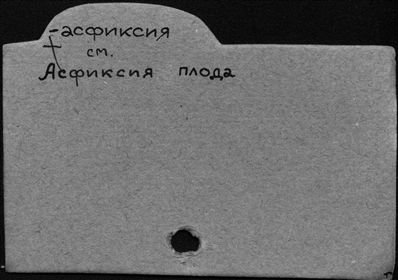 -асфиксия
см.
Асфиксия плода